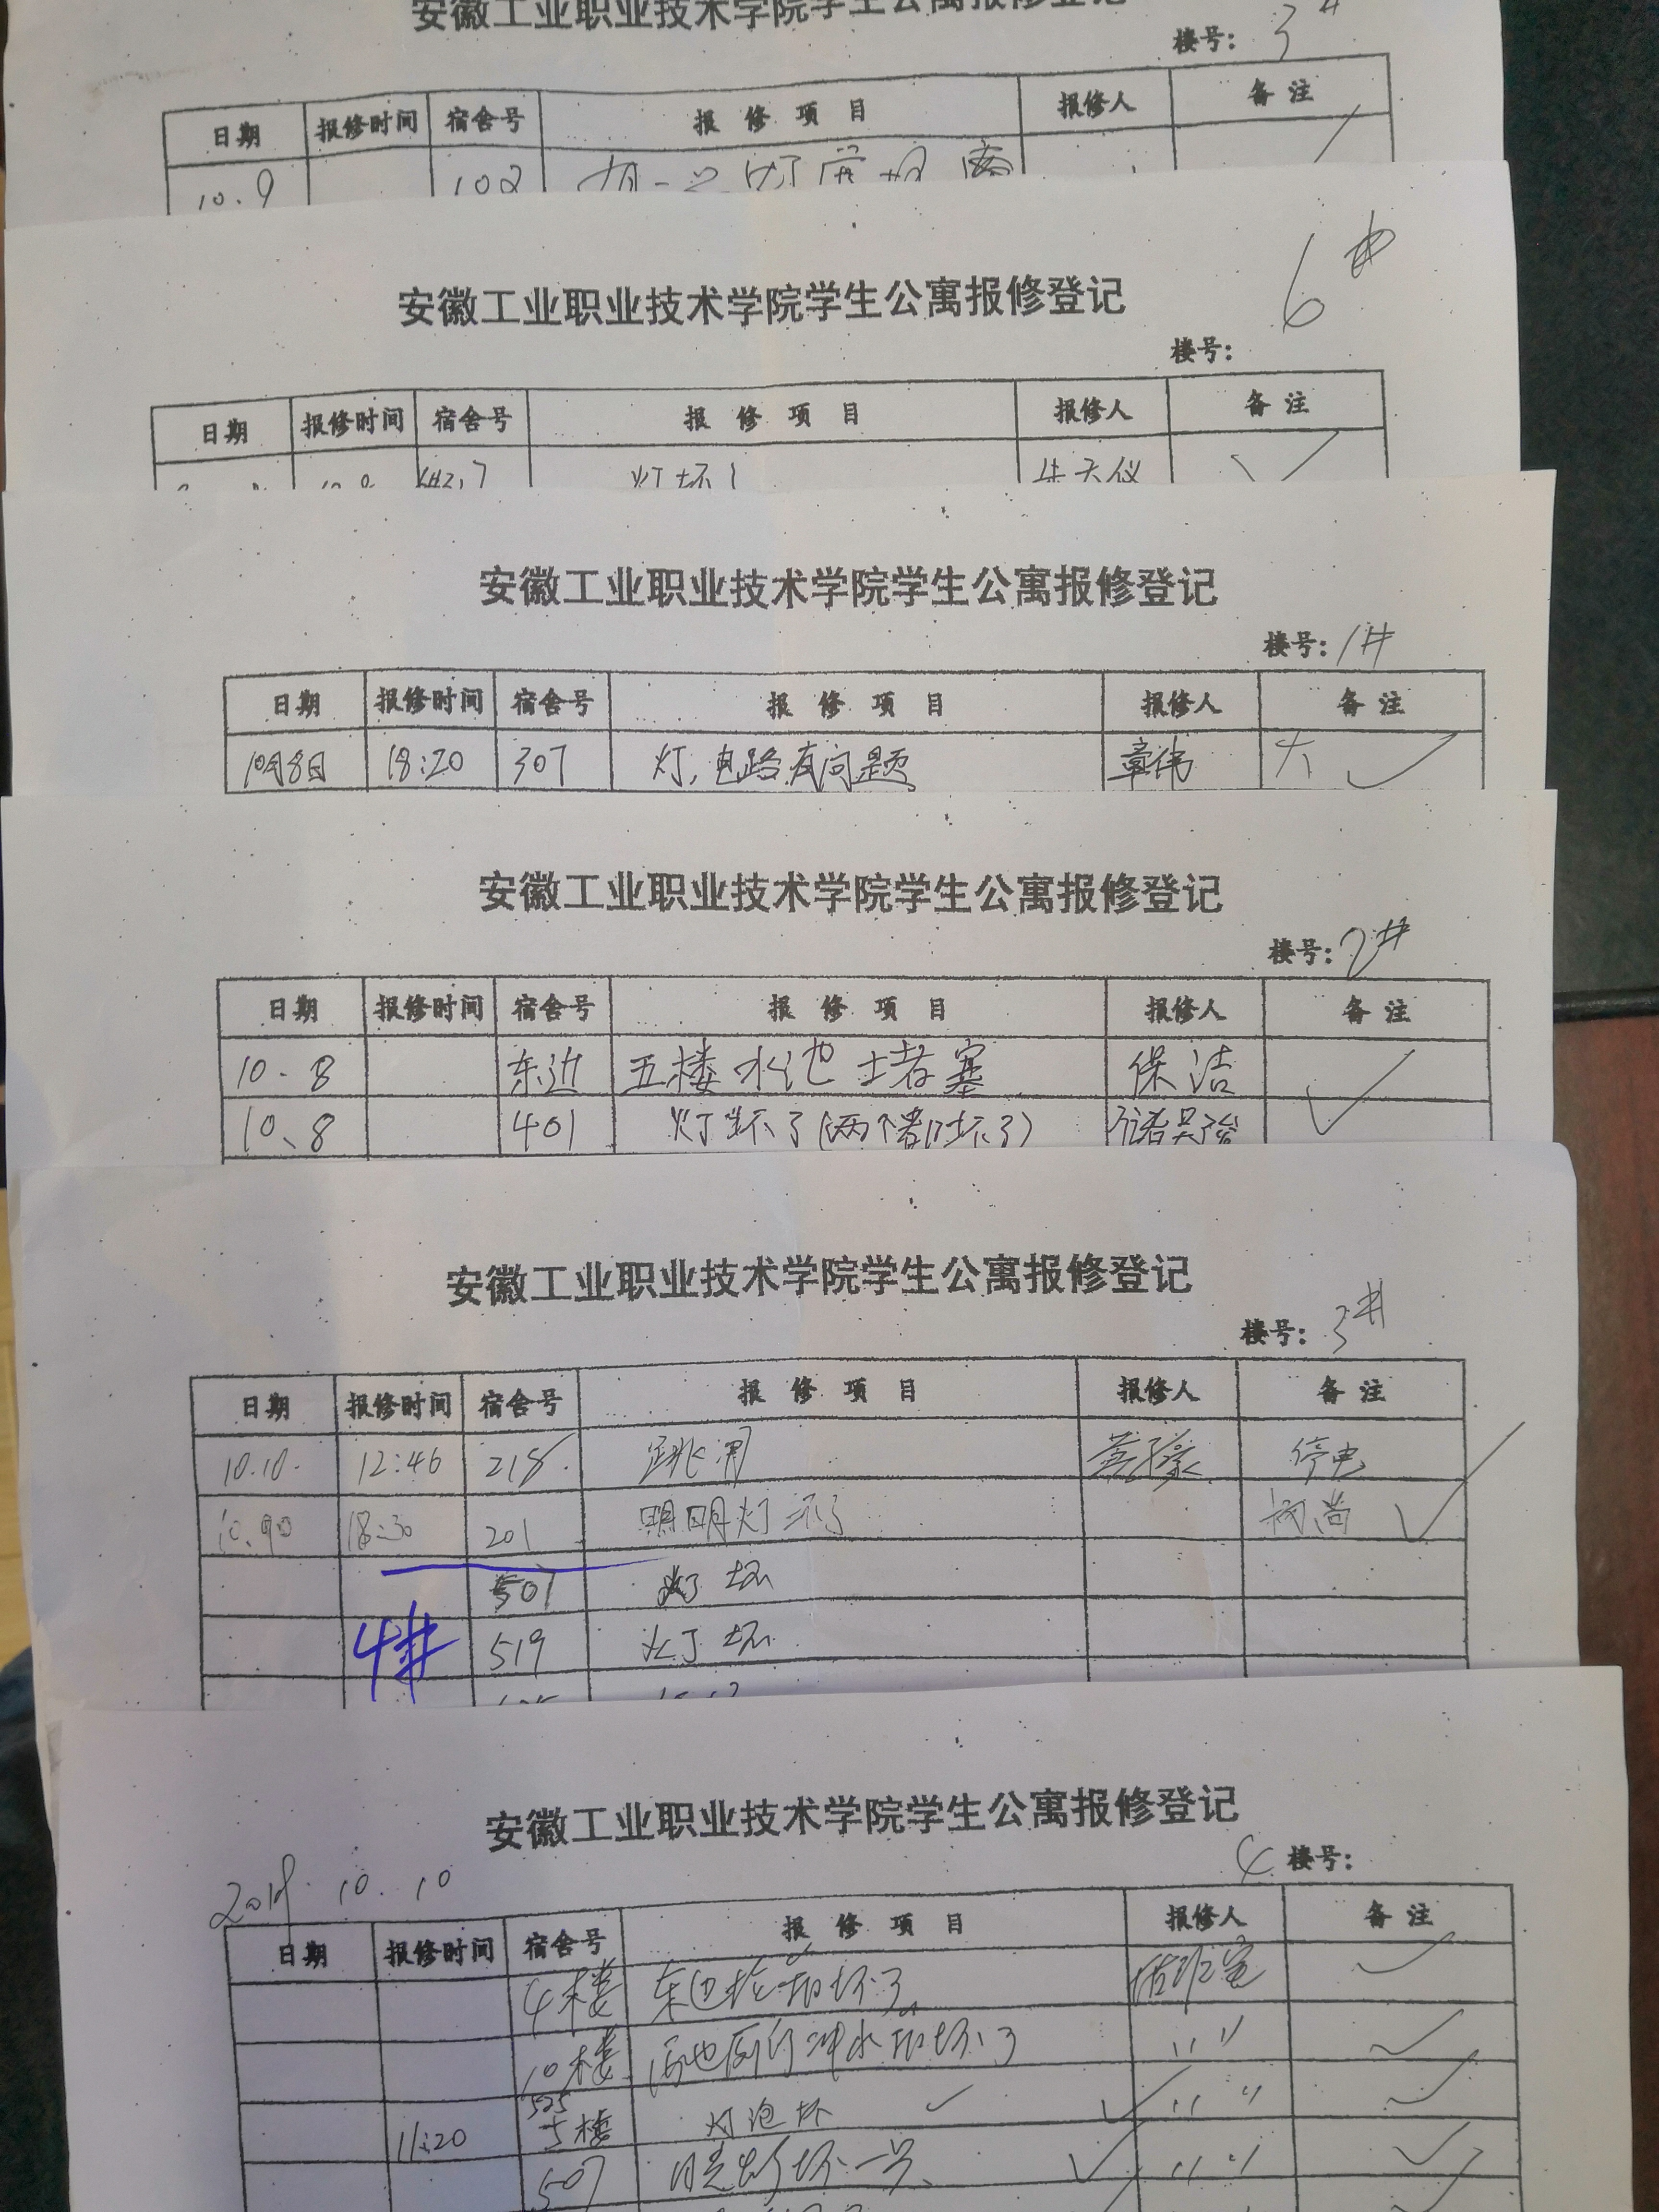 安徽工业职业技术学院学生公寓报修登记
楼号: 3#
日期 报修时间 宿舍号 报修项目 报修人 备注
10.9 102
6#
安徽工业职业技术学院学生公寓报修登记
楼号:
日期 报修时间 宿舍号 报修项目 报修人 备注
灯坏
安徽工业职业技术学院学生公寓报修登记
楼号: 1#
日期 报修时间 宿舍号 报修项目 报修人 备注
10月8日 18:20 307 灯,电路有问题 章伟
安徽工业职业技术学院学生公寓报修登记
楼号: 2#
日期 报修时间 宿舍号 报修项目 报修人 备注
10.8 东边 五楼水池堵塞 保洁 ✓
10、8 401 灯坏了(两个都坏了)
安徽工业职业技术学院学生公寓报修登记
楼号: 3#
日期 报修时间 宿舍号 报修项目 报修人 备注
10.10. 12:46 218. 跳闸 停电
10.9日 18:30 201 灯坏了 ✓
507 灯坏
4# 519 灯坏
安徽工业职业技术学院学生公寓报修登记
4 楼号:
10.10
日期 报修时间 宿舍号 报修项目 报修人 备注
4楼 东边 坏了 值班室 ✓
10楼 冲水 坏了 〃 ✓
525
11:20 5楼 灯泡坏 ✓ ✓ 〃 ✓
507 坏 ✓ 〃 ✓